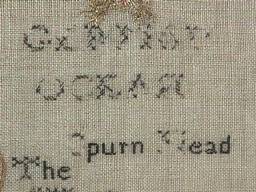 GERMAN
OCEAN
Spurn Head
The